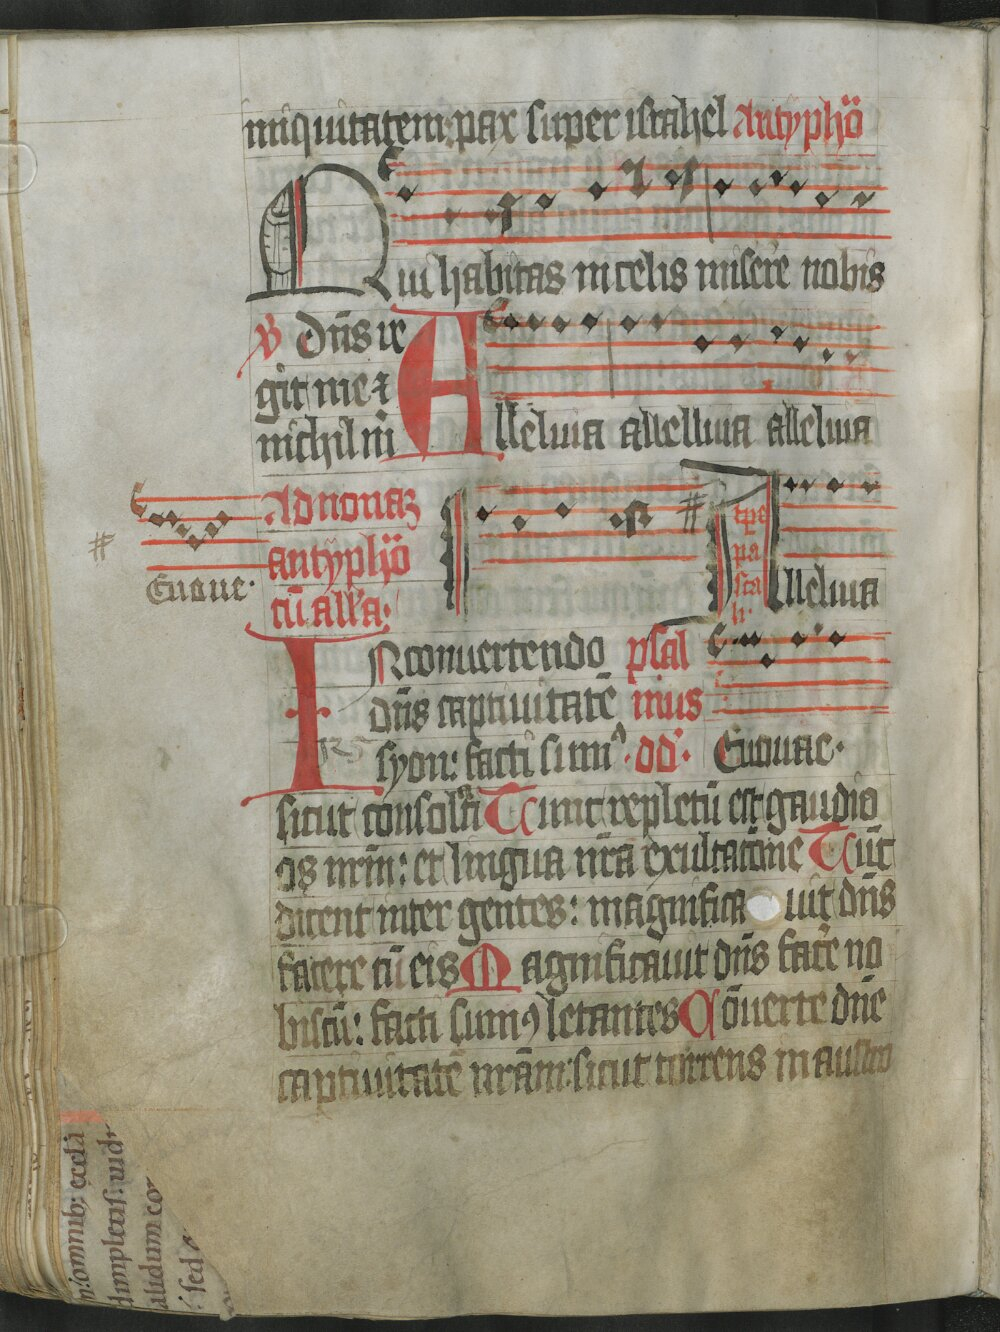 iniquitatem: pax super israhel Antypho
Qui habitas in celis misere nobis
V Dn̄s re
git me ⁊
nichil m̄
Alleluia allelluia alleluia
Ad nonaz
antypho
cū all'a.
Euouae.
tp̄e
pa
sca
li.
Alleluia
IN conuertendo psal
dn̄s captiuitatē mus
syon: facti sumꝰ dd. Euouae.
sicut consolati Tunc repletū est gaudio
os nrm̄: et lingua nrā exultatōne Tūc
dicent inter gentes: magnifica uit dn̄s
facere cū eis Magnificauit dn̄s facē no
biscū: facti sumꝰ letantes Cōuerte dn̄e
captiuitatē nrām: sicut torrens in austro
omnib; eccl'a